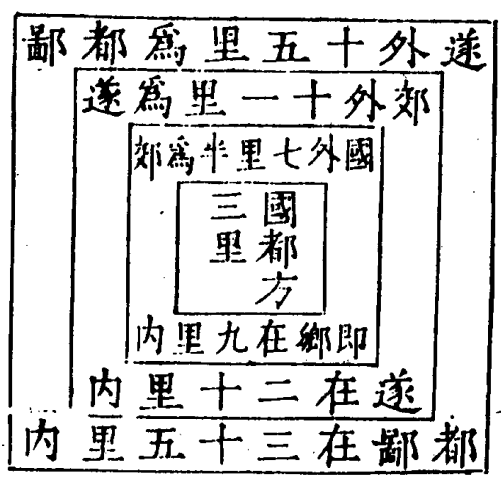 遂外十五里為都鄙
郊外十一里為遂
國外七里半為郊
國都方
三里
即鄉在九里内
遂在二十里内
都鄙在三十五里内